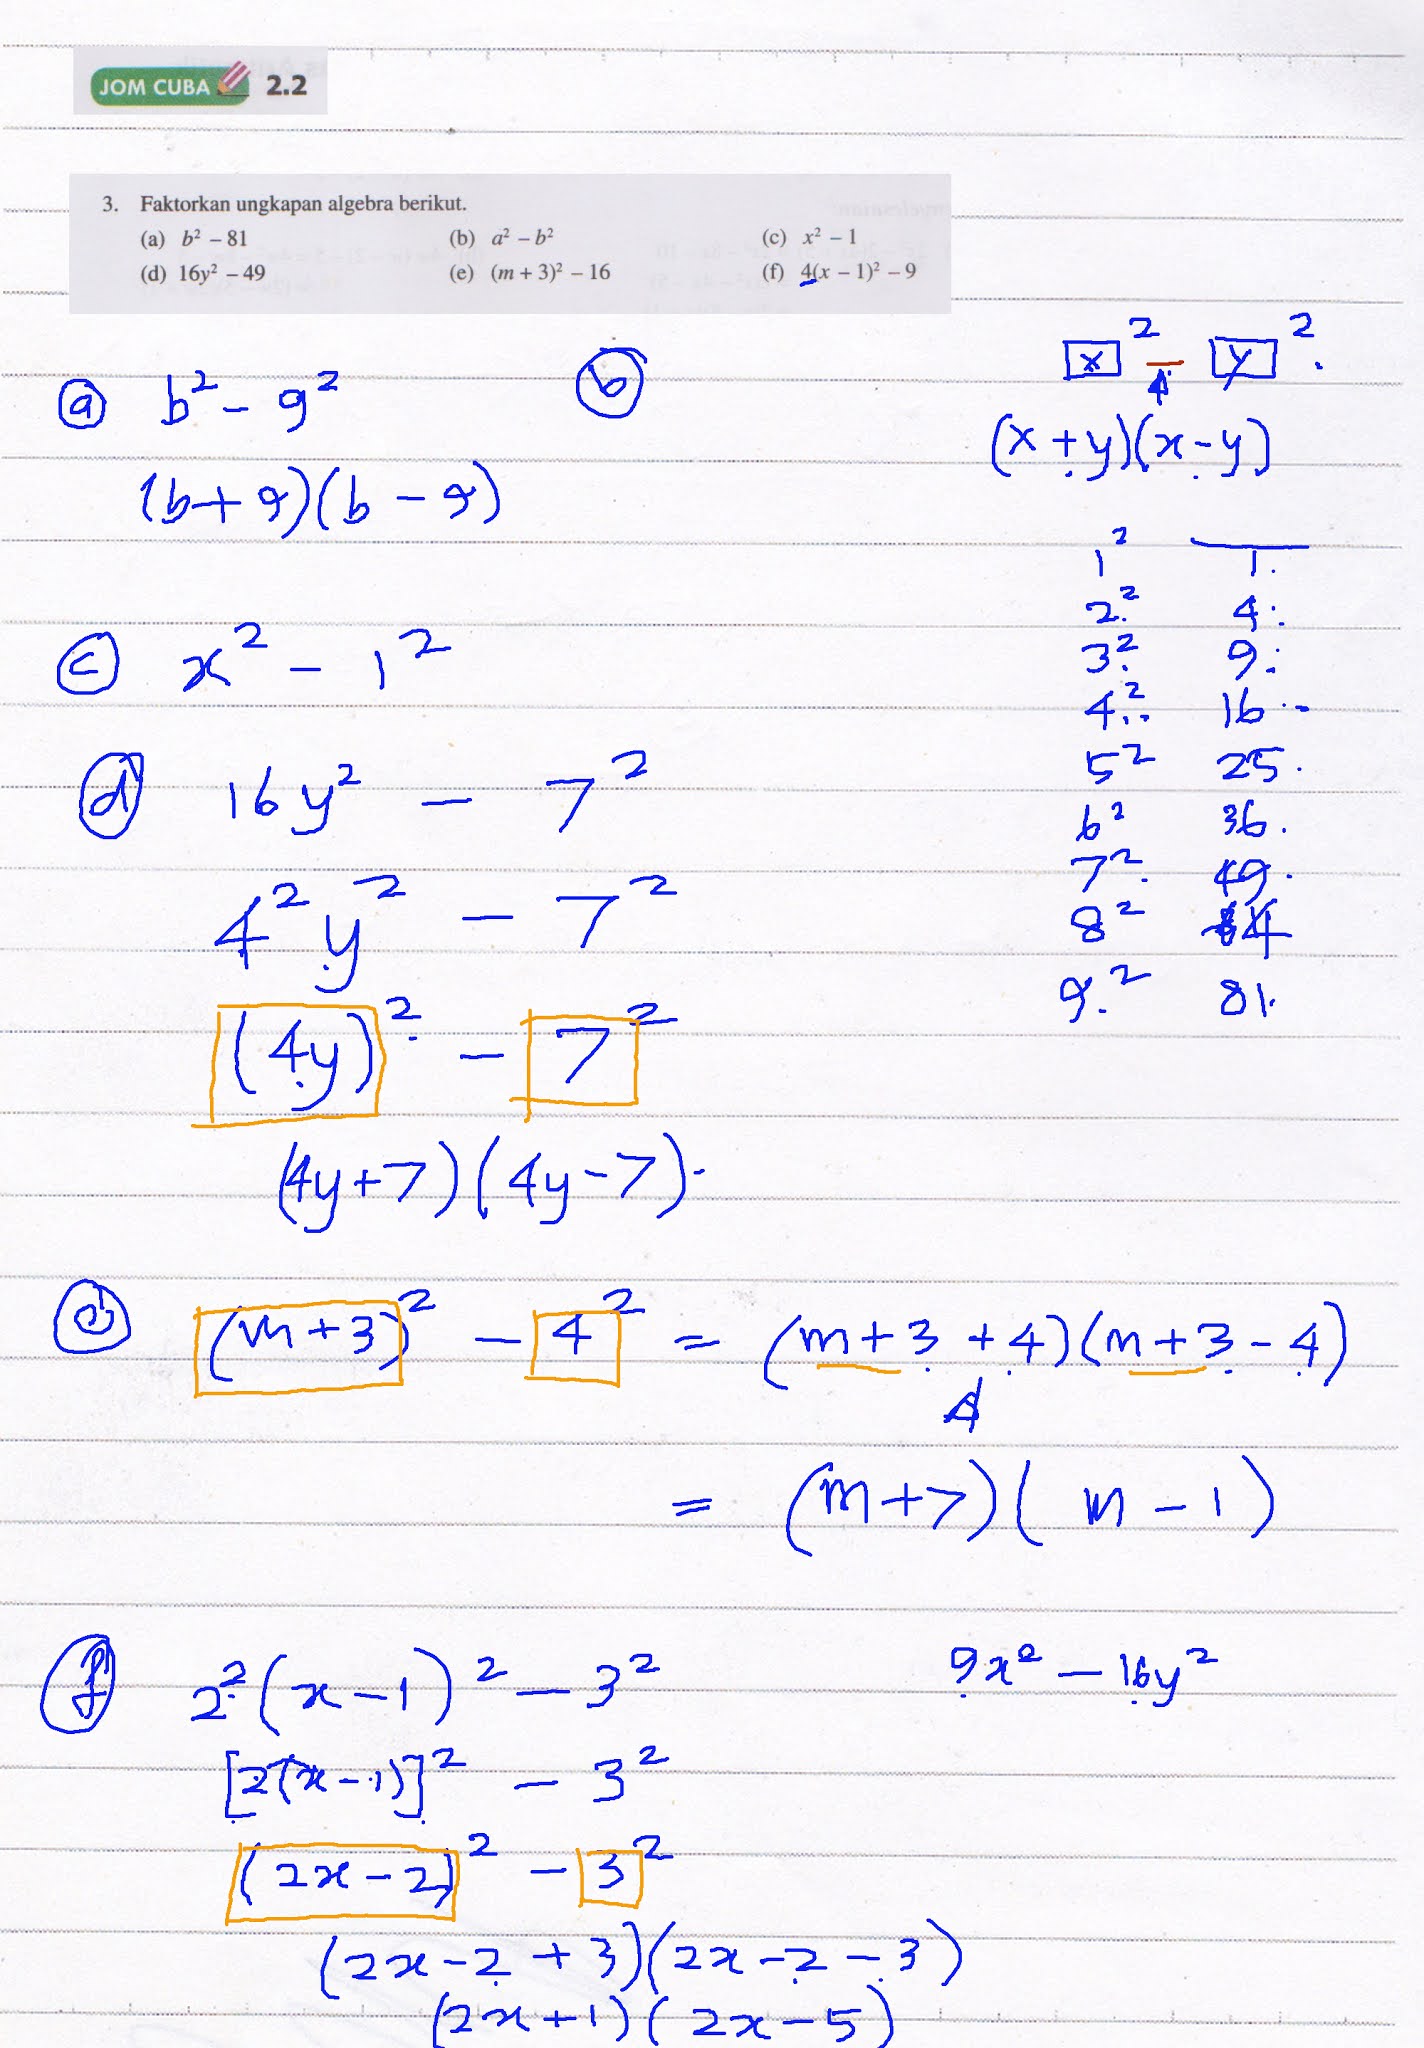 JOM CUBA 2.2
3. Faktorkan ungkapan algebra berikut.
(a) b² – 81 (b) a² – b² (c) x² – 1
(d) 16y² – 49 (e) (m + 3)² – 16 (f) 4(x – 1)² – 9
x² – y².
(x + y)(x - y)
ⓐ b² - 9²
(b + 9)(b - 9)
ⓑ
1² 1
2² 4
3² 9
4² 16
5² 25
6² 36
7² 49
8² 64
9² 81
ⓒ x² - 1²
ⓓ 16y² - 7²
4² y² - 7²
(4y)² - 7²
(4y+7)(4y-7)
ⓔ (m+3)² - 4² = (m+3+4)(m+3-4)
= (m+7)(m-1)
ⓕ 2²(x-1)² - 3²
[2(x-1)]² - 3²
(2x-2)² - 3²
(2x-2+3)(2x-2-3)
(2x+1)(2x-5)
9x² - 16y²